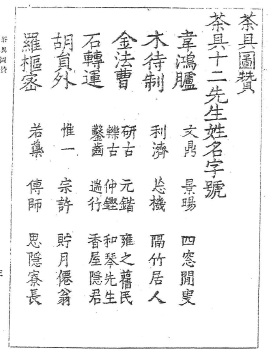 茶具圖贊
茶具十二先生姓名字號
韋鴻臚 文鼎 景暘 四窓閒叟
木待制 利濟 忘機 隔竹居人
金法曹 研古 元鍇 雍之舊民
轢古 仲鏗 和琴先生
石轉運 鑿齒 遄行 香屋隱君
胡員外 惟一 宗許 貯月僊翁
羅樞密 若藥 傳師 思隱寮長